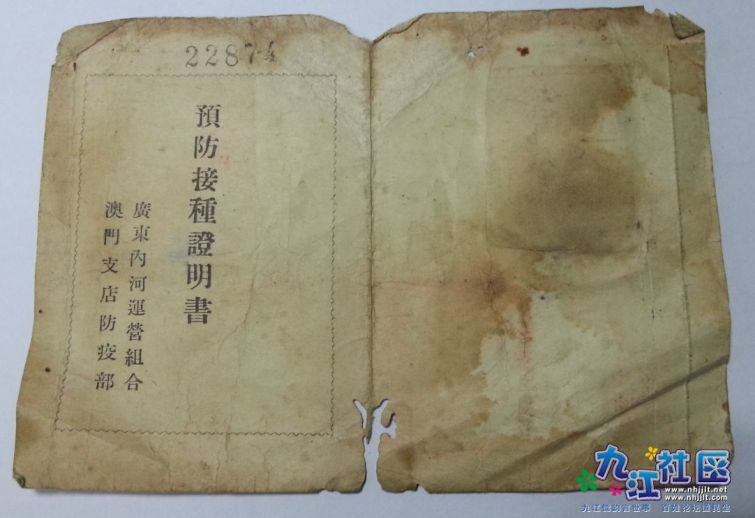 2287
預防接種證明書
廣東內河運營組合
澳門支店防疫部
九江社区
www.nhjjlt.net
www.nhjjlt.com